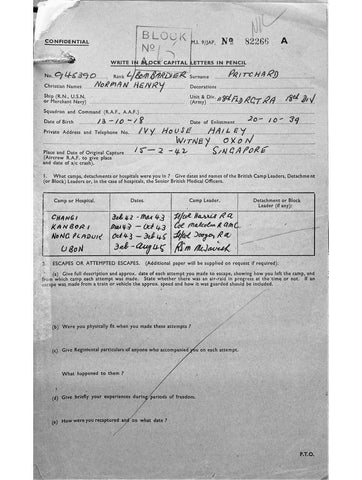 BLOCK
No
CONFIDENTIAL
M.I. 9/JAP. No 82266 A
WRITE IN BLOCK CAPITAL LETTERS IN PENCIL
No. 945390 Rank L/BOMBARDIER Surname PRITCHARD
Christian Names NORMAN HENRY Decorations
Ship (R.N., U.S.N. or Merchant Navy) Unit & Div. (Army) 118 FLD RGT RA 18th DIV
Squadron and Command (R.A.F., A.A.F.)
Date of Birth 13-10-18 Date of Enlistment 20-10-39
Private Address and Telephone No. IVY HOUSE HAILEY
WITNEY OXON
Place and Date of Original Capture 15-2-42 SINGAPORE
(Aircrew R.A.F. to give place
and date of a/c crash).
1. What camps, detachments or hospitals were you in? Give dates and names of the British Camp Leaders, Detachment
(or Block) Leaders or, in the case of hospitals, the Senior British Medical Officers.
Camp or Hospital. Dates. Camp Leader. Detachment or Block Leader (if any):
CHANGI Feb 42 - Mar 43 Harris RA
KANBORI Mar 43 - Oct 43 Col Malcolm RAMC
NONG PLADUK Oct 43 - Feb 45 RA
UBON Feb - Aug 45 RSM
2. ESCAPES OR ATTEMPTED ESCAPES. (Additional paper will be supplied on request if required).
(a) Give full description and approx. date of each attempt you made to escape, showing how you left the camp, and
from which camp each attempt was made. State whether there was an air-raid in progress at the time or not. If an
escape was made from a train or vehicle the approx. speed and how it was guarded should be included.
(b) Were you physically fit when you made these attempts?
(c) Give Regimental particulars of anyone who accompanied you on each attempt.
What happened to them?
(d) Give briefly your experiences during periods of freedom.
(e) How were you recaptured and on what date?
P.T.O.